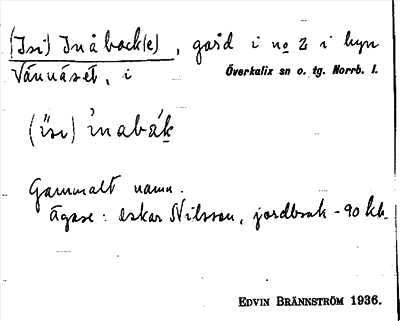 (Isi) Inåback(e), gård i no 2 i byn
Vännäset, i
Överkalix sn o. tg. Norrb. l.
(i̋si) ìnabák
Gammalt namn.
Ägare: Oskar Nilsson, jordbruk - 90 kl.
EDVIN BRÄNNSTRÖM 1936.